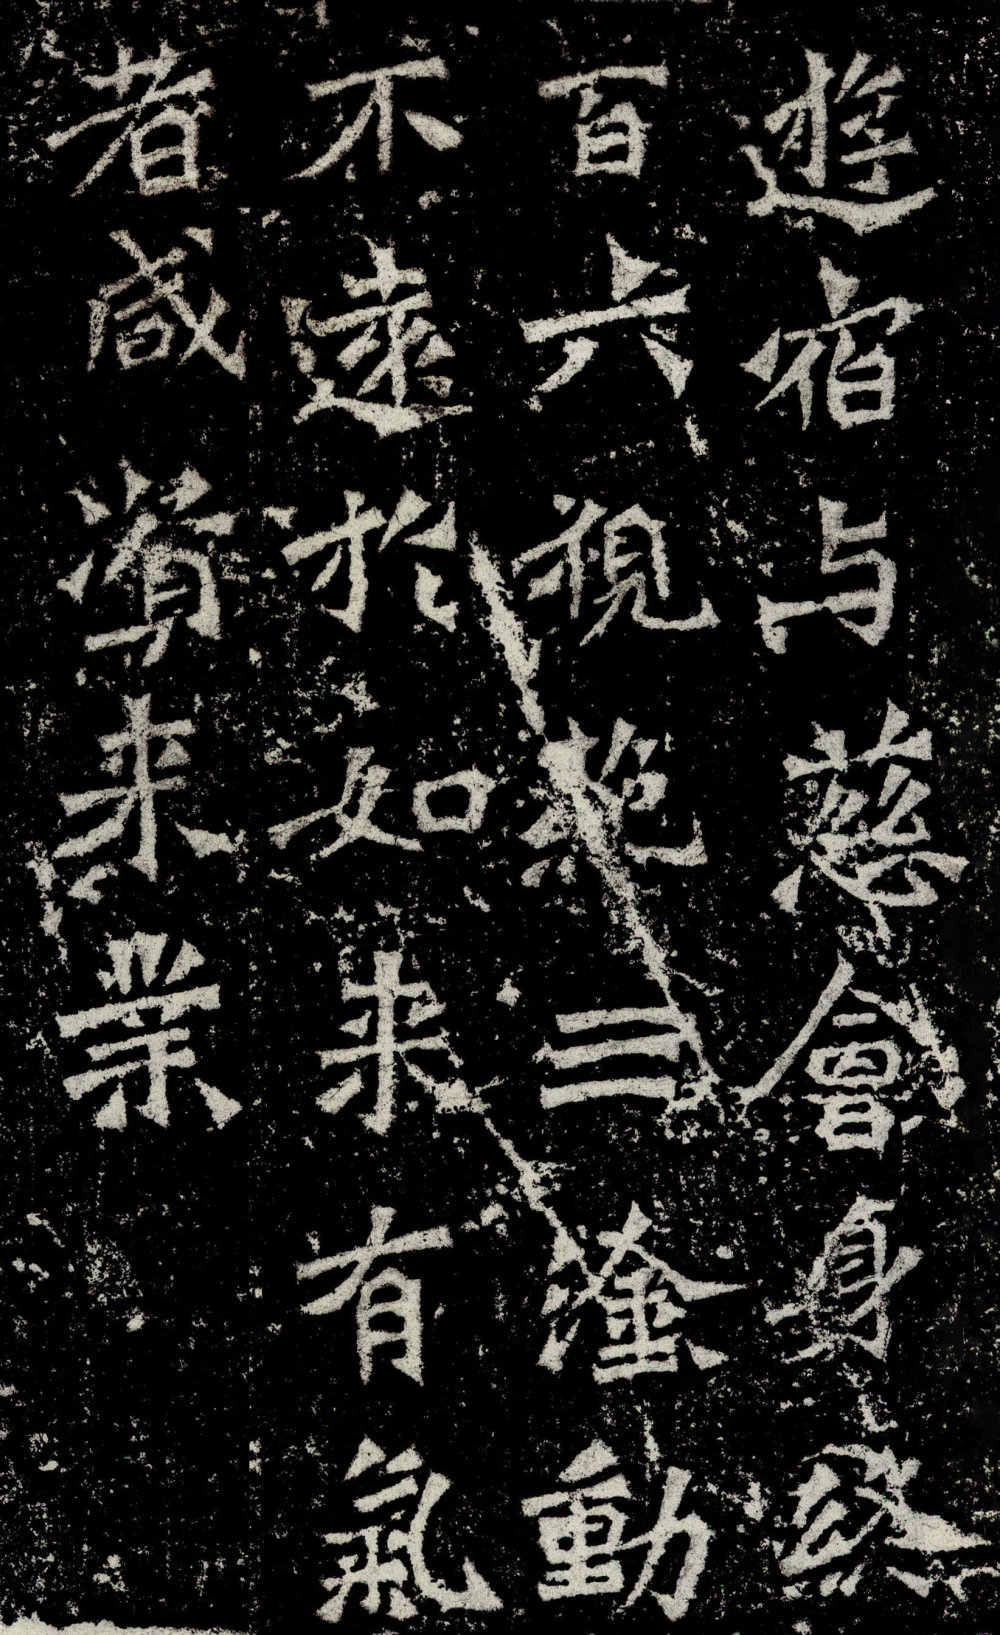 遊宿与慈會身終
百六視絶三塗動
不遠於如来有氣
者咸来業